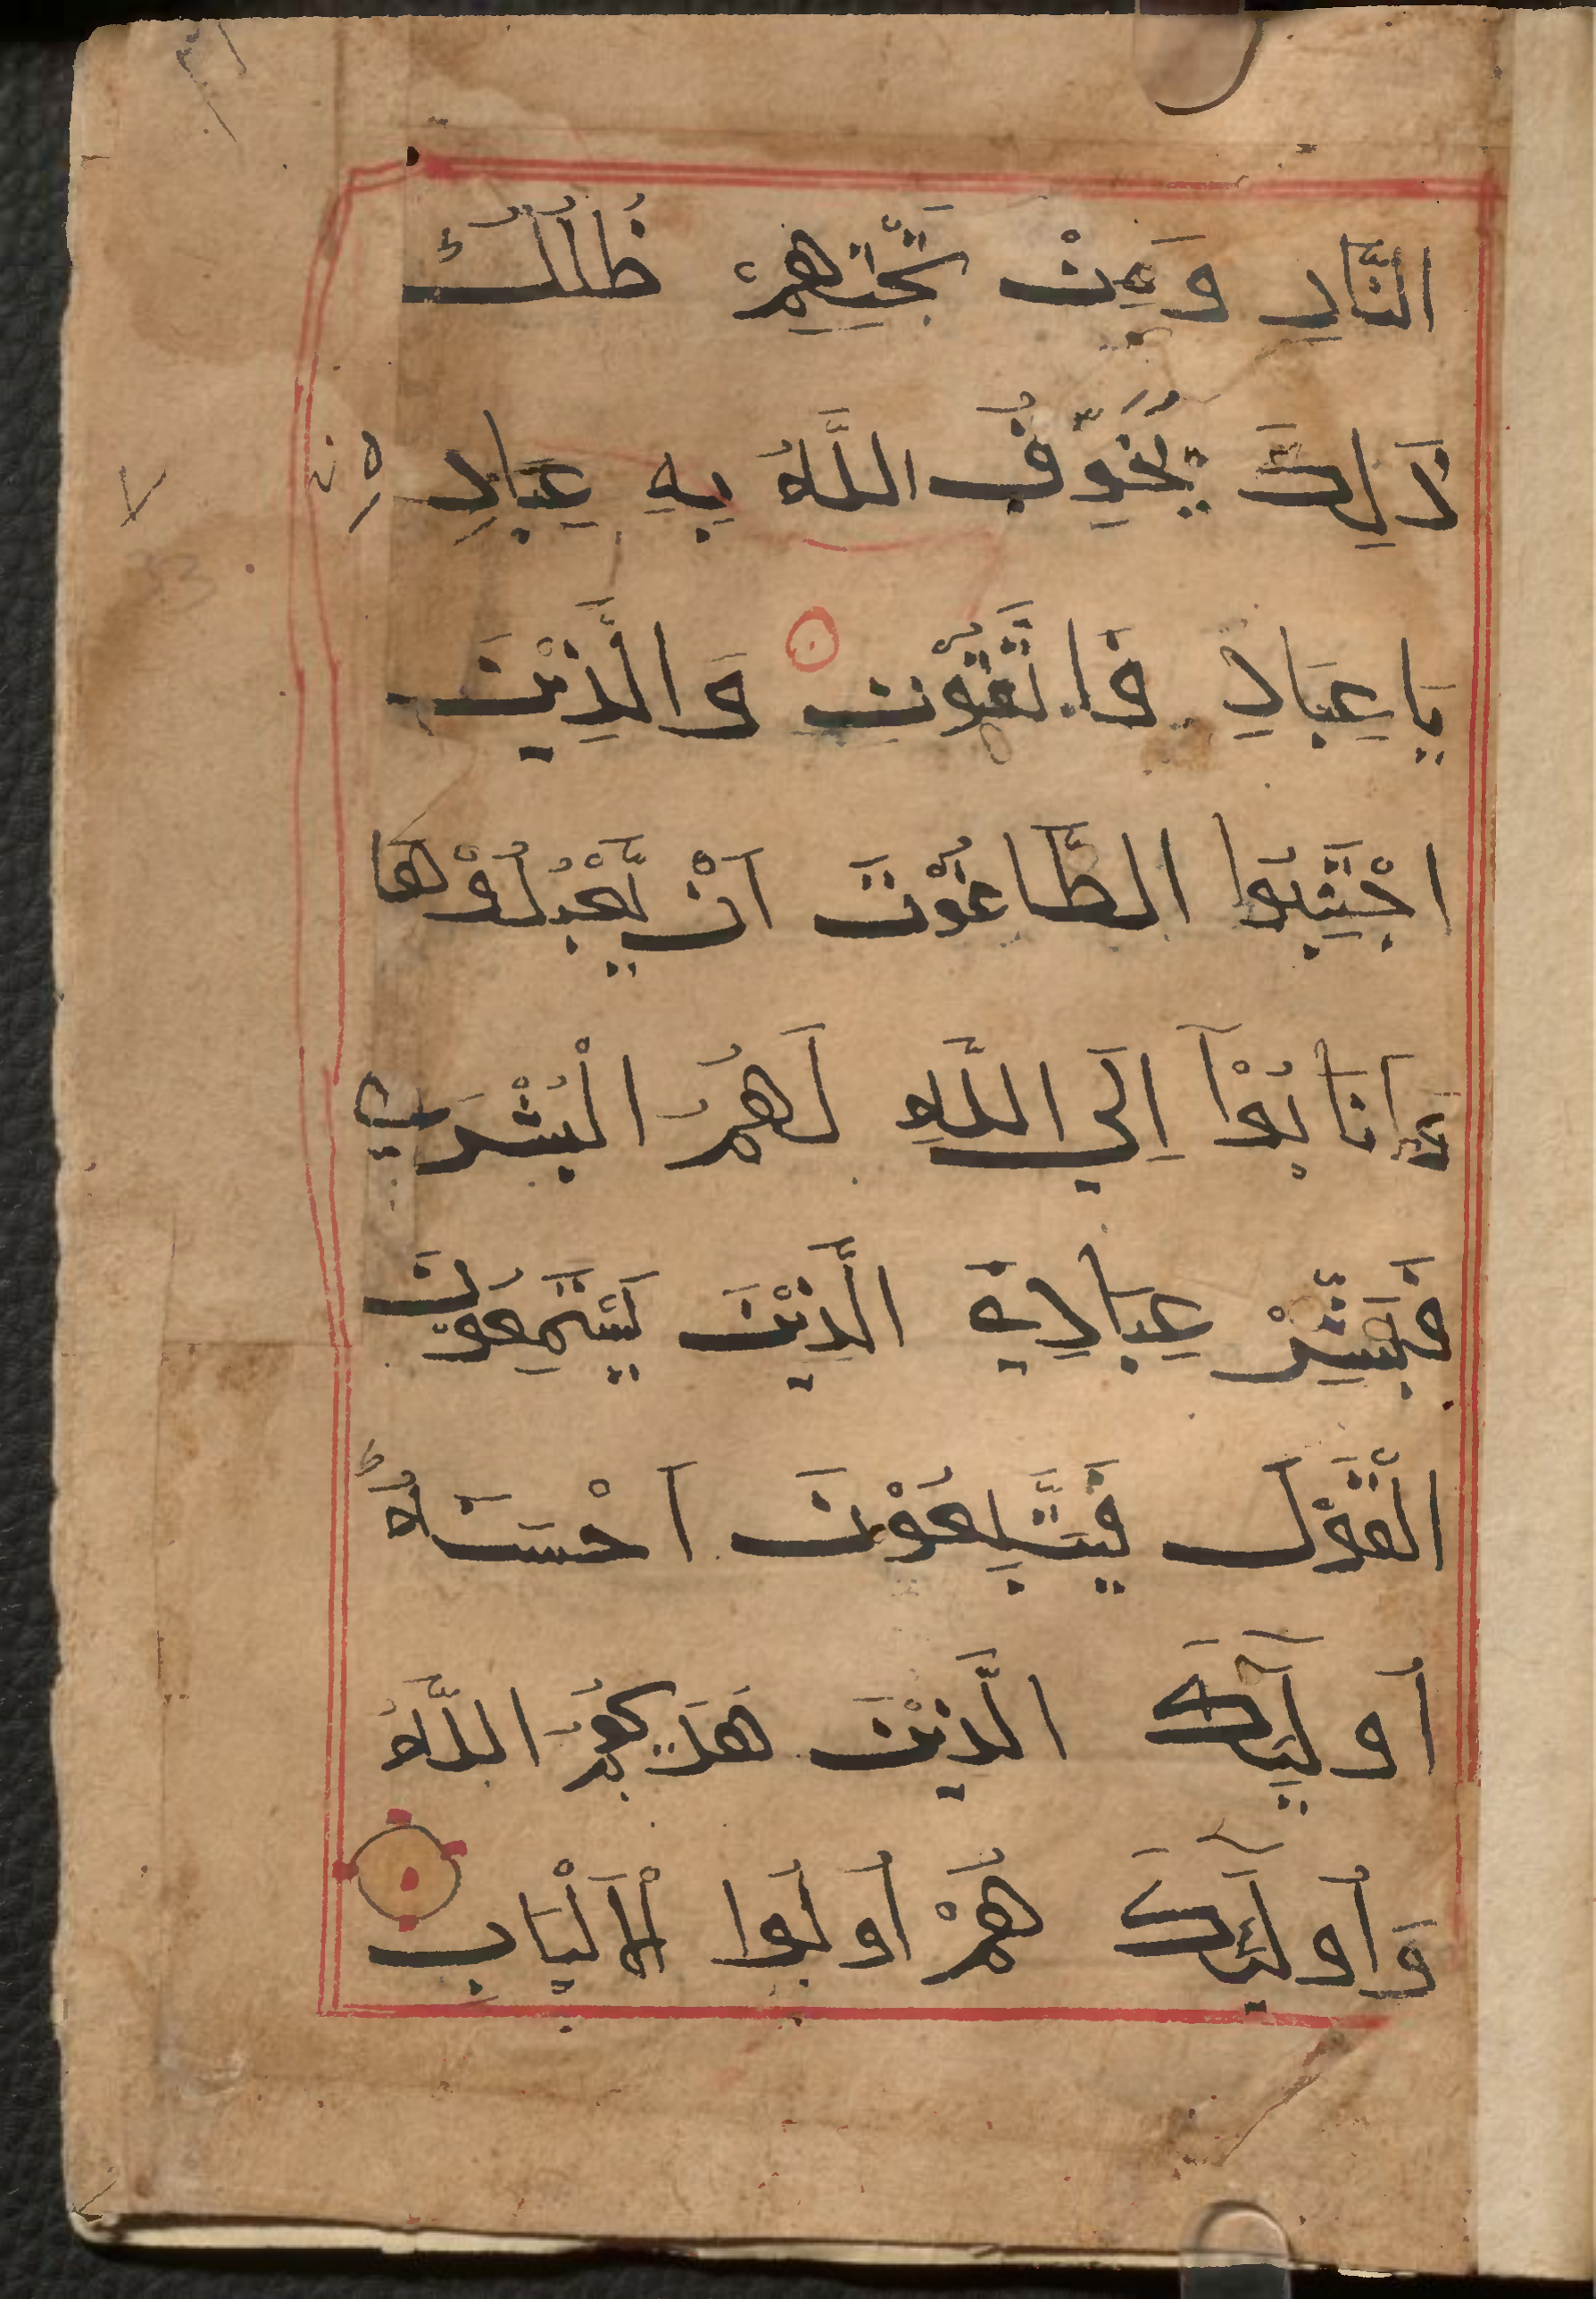 النَّارِ وَمِنْ تَحْتِهِمْ ظُلَلٌ
ذَلِكَ يُخَوِّفُ اللَّهُ بِهِ عِبَادِهِ
يَا عِبَادِ فَاتَّقُوْنِ وَالَّذِيْنَ
اجْتَنِبُوا الطَّاغُوْتَ اَنْ يَّعْبُدُوْهَا
وَاَنَابُوْآ اِلَى اللَّهِ لَهُمُ الْبُشْرَى
فَبَشِّرْ عِبَادِيَ الَّذِيْنَ يَسْتَمِعُوْنَ
الْقَوْلَ فَيَتَّبِعُوْنَ اَحْسَنَهُ
اُولَئِكَ الَّذِيْنَ هَدَيهُمُ اللَّهُ
وَاُولَئِكَ هُمْ اُولُوا الْاَلْبَابِ